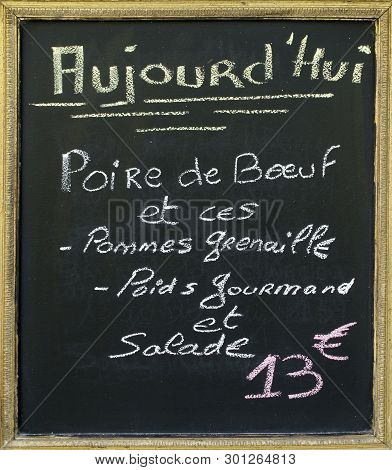 Aujourd'Hui
Poire de Bœuf
et ces
- Pommes Grenaille
- Poids Gourmand
et
Salade
13 €
shutterstock®
IMAGE ID: 2001264813
www.shutterstock.com